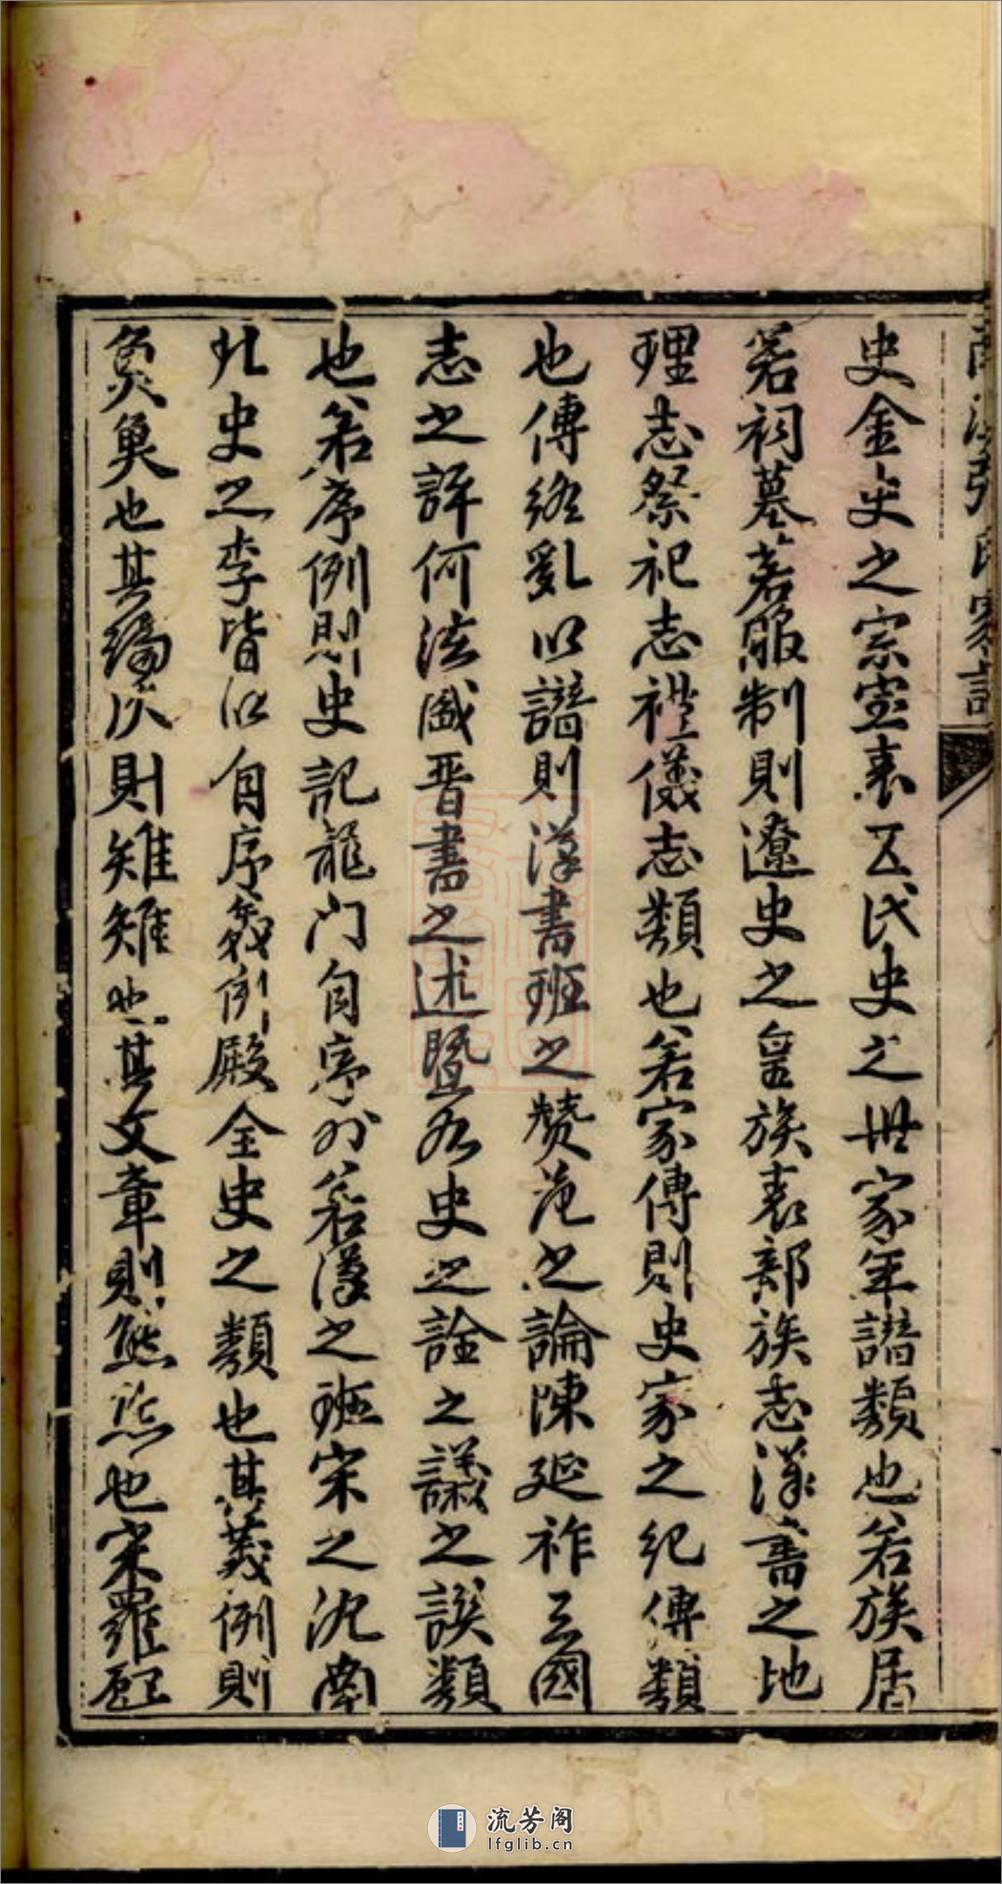 史金史之宗室表五代史之世家年譜類也若族居
若祠墓若服制則遼史之皇族表部族志漢書之地
理志祭祀志禮儀志類也若家傳則史家之紀傳類
也傳終亂以譜則漢書班之贊范之論陳延祚三國
志之評何法盛晉書之述暨各史之詮之議之譔類
也若序例則史記龍门自序外若漢之班宋之沈南
北史之李皆以自序義例殿全史之類也其義例則
魚魚也其編次則雉雉也其文章則熊熊也宋羅
流芳阁
lfglib.cn